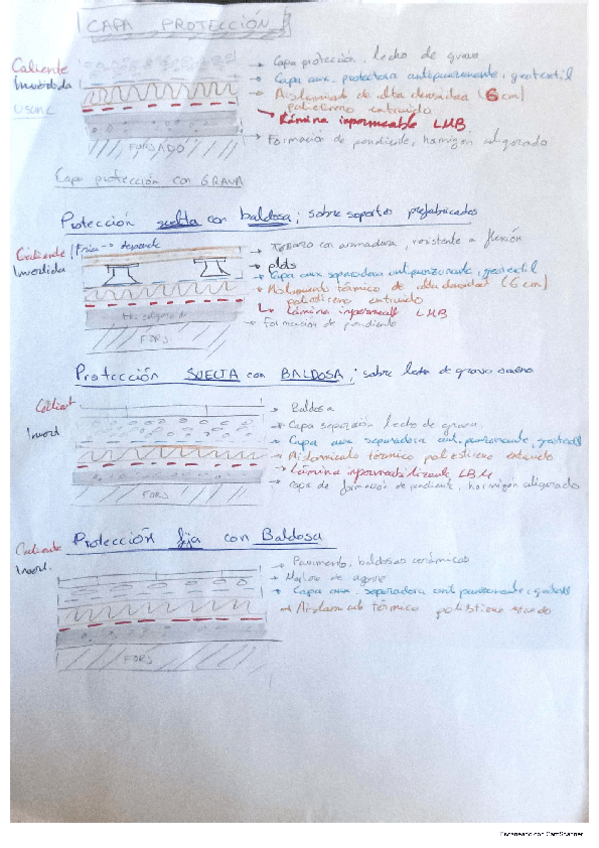 CAPA PROTECCIÓN
Caliente
Invertida
Capa protección, lecho de grava
Capa aux. protectora antipunzonante, geotextil
Aislamiento de alta densidad (6 cm)
poliestireno extruido
Lámina impermeable LMB
Formación de pendiente, hormigón aligerado
FORJADO
Capa protección con GRAVA
Protección suelta con baldosa; sobre soportes prefabricados
Caliente / Fría -> depende
Invertida
Terrazo con armadura, resistente a flexión
plots
Capa aux separadora antipunzonante, geotextil
Aislamiento térmico de alta densidad (6 cm)
poliestireno extruido
Lámina impermeable LMB
Formación de pendiente
FORJ
Protección SUELTA con BALDOSA; sobre lecho de grava
Invert
Baldosa
Capa separación lecho de grava
Capa aux separadora antipunzonante, geotextil
Aislamiento térmico poliestireno extruido
Lámina impermeabilizante LBM
Capa de formación de pendiente, hormigón aligerado
FORJ
Caliente
Protección fija con Baldosa
Invert.
Pavimento, baldosas cerámicas
Mortero de agarre
Capa aux separadora antipunzonante, geotextil
Aislamiento térmico poliestireno extruido
FORJ
Escaneado con CamScanner